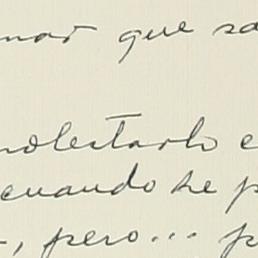 mar que sa
molestarlo e
cuando se p
, pero... p